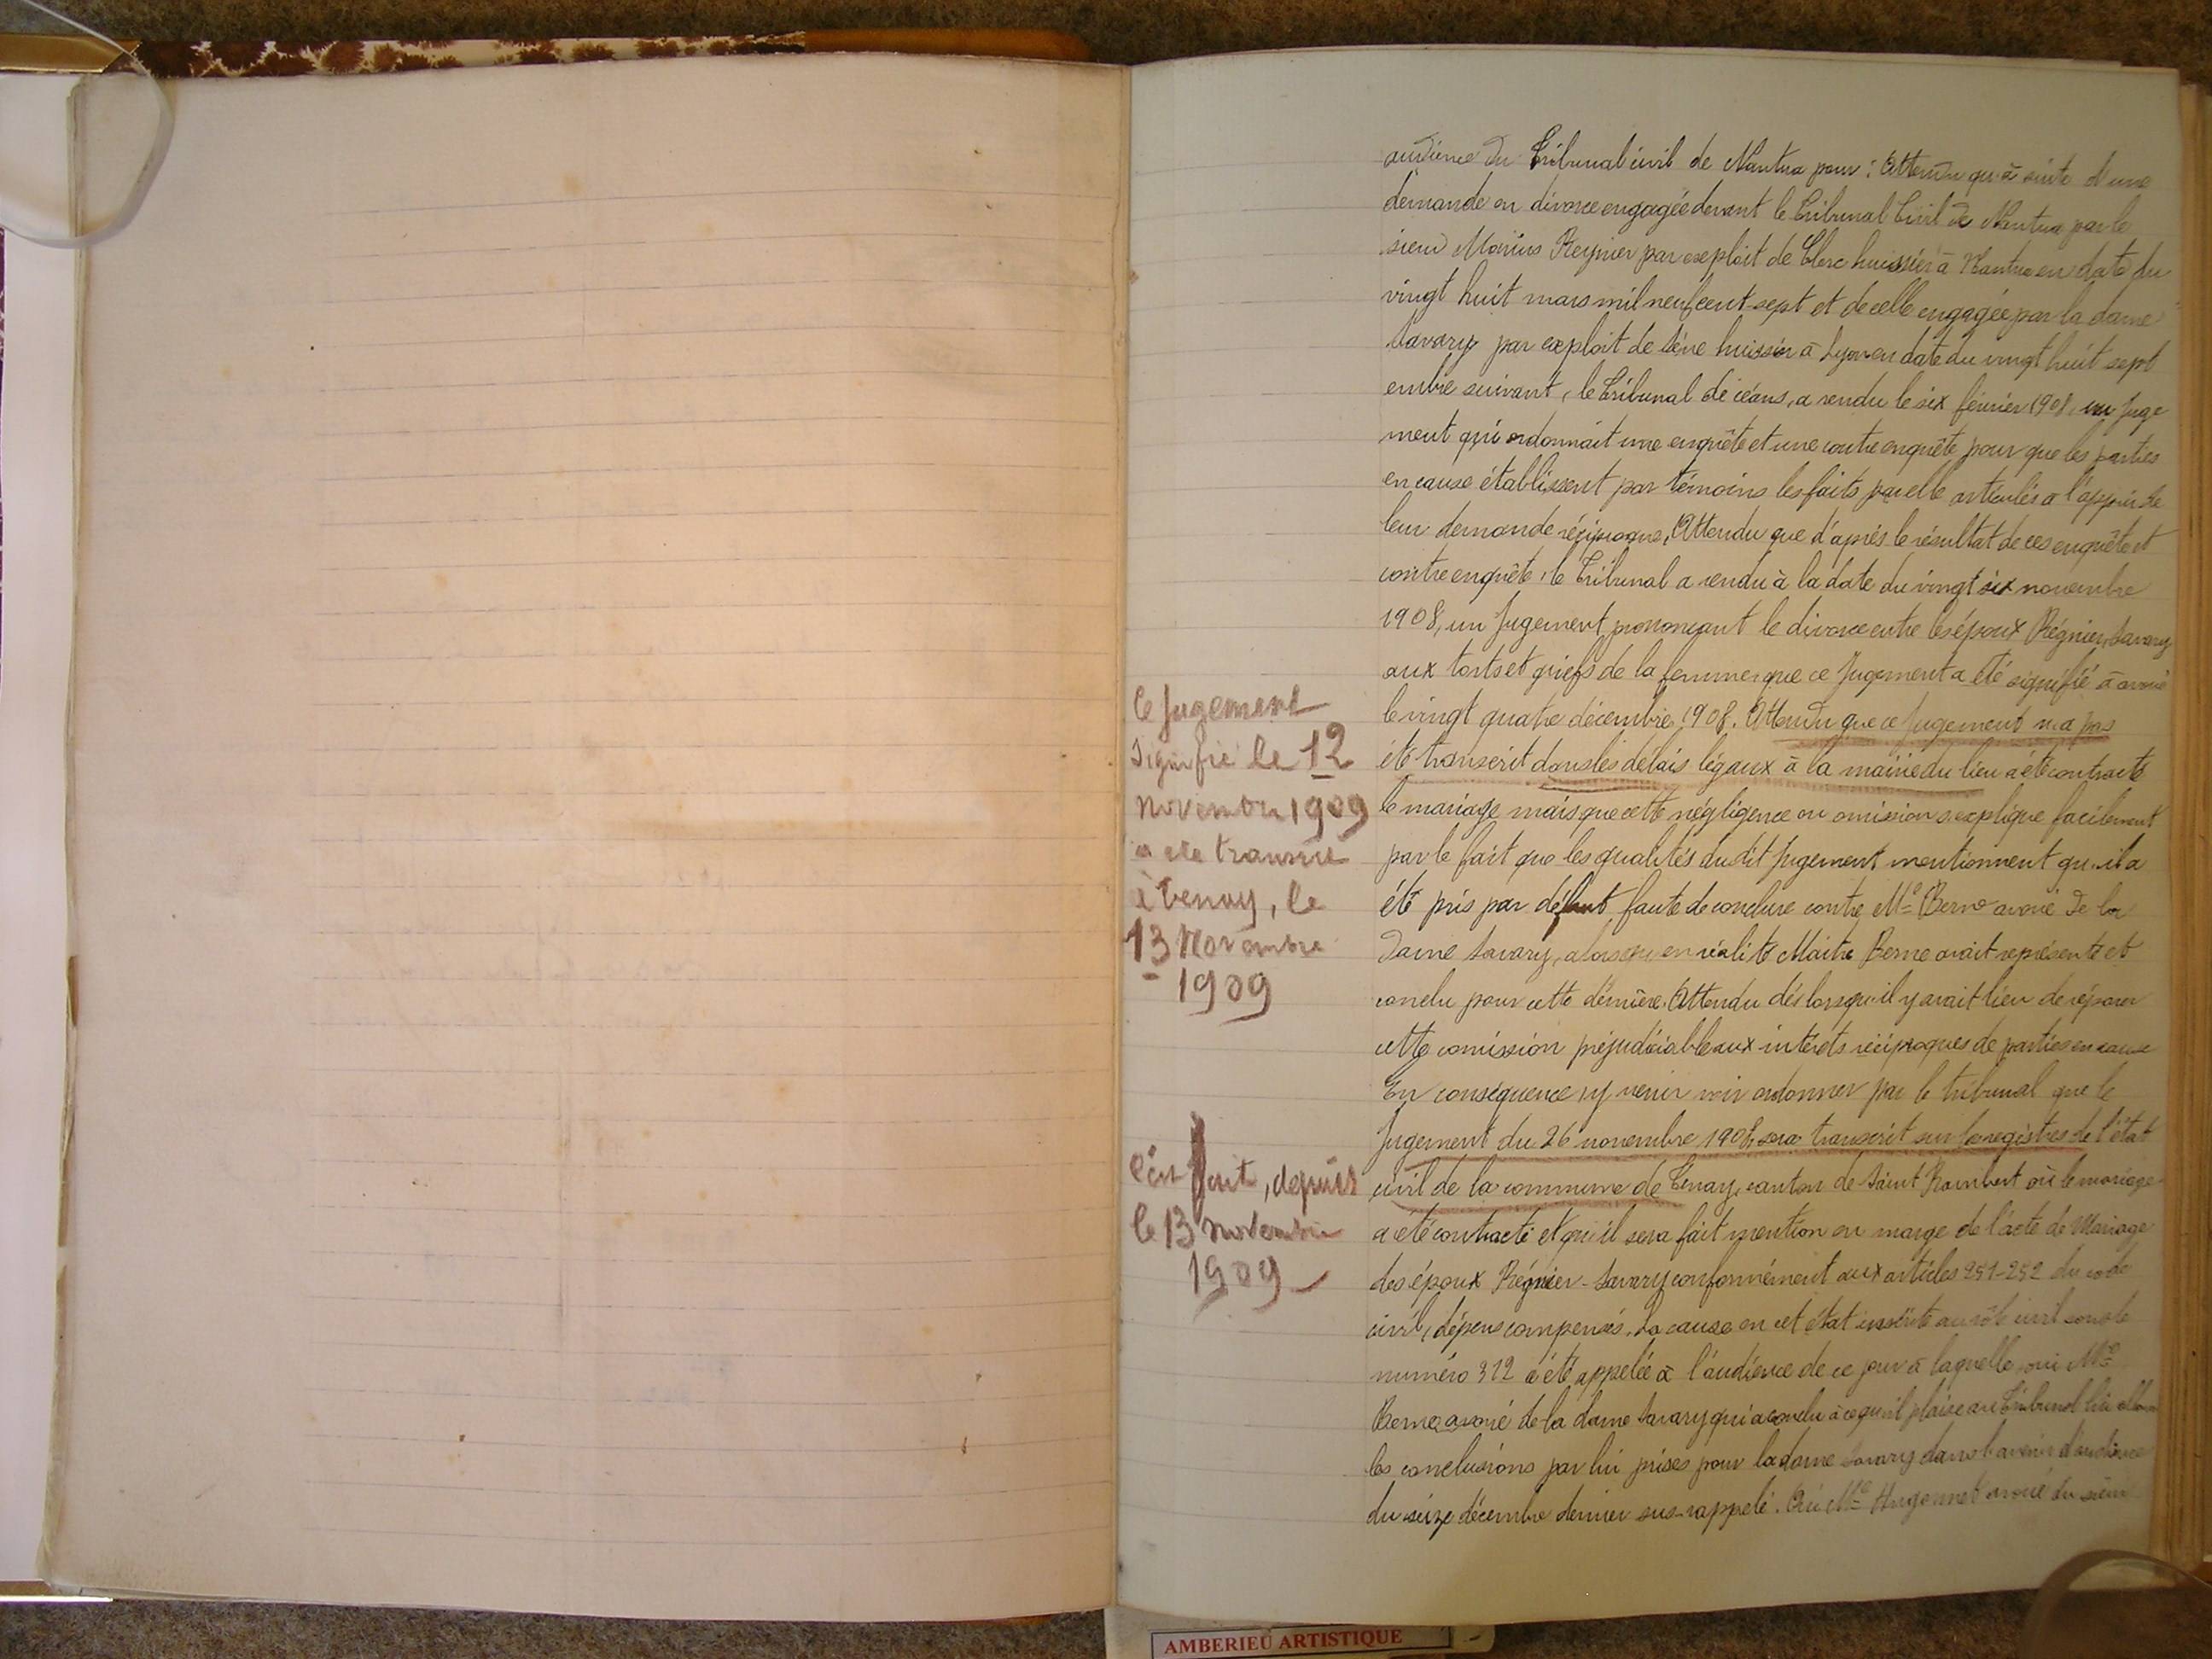 audience du Tribunal civil de Nantua pour : Attendu qu'à suite d'une
demande en divorce engagée devant le Tribunal Civil de Nantua par le
sieur Marius Reynier par exploit de Clerc huissier à Nantua en date du
vingt huit mars mil neuf cent sept et de celle engagée par la dame
Savary par exploit de Sène huissier à Lyon en date du vingt huit sept
embre suivant, le Tribunal de céans, a rendu le six février 1908, un Juge
ment qui ordonnait une enquête et une contre enquête pour que les parties
en cause établissent par témoins les faits par elle articulés à l'appui de
leur demande réciproque, Attendu que d'après le résultat de ces enquête et
contre enquête, le Tribunal a rendu à la date du vingt six novembre
1908, un Jugement prononçant le divorce entre les époux Régnier, Savary
aux torts et griefs de la femme que ce Jugement a été signifié à avoué
le vingt quatre décembre 1908. Attendu que ce Jugement n'a pas
été transcrit dans les délais légaux à la mairie du lieu a été contracté
le mariage mais que cette négligence ou omission s'explique facilement
par le fait que les qualités du dit Jugement mentionnent qu'il a
été pris par défaut faute de conclure contre Me Berne avoué de la
Dame Savary, alors qu'en réalité Maitre Berne avait représenté et
conclu pour cette dernière. Attendu dès lors qu'il y avait lieu de réparer
cette omission préjudiciable aux intérêts réciproques de parties en cause
En conséquence, y venir voir ordonner par le tribunal que le
Jugement du 26 novembre 1908, sera transcrit sur les registres de l'état
civil de la commune de Tenay, canton de Saint Rambert où le mariage
a été contracté et qu'il sera fait mention en marge de l'acte de Mariage
des époux Régnier - Savary conformément aux articles 251-252 du code
civil, dépens compensés. La cause en cet état inscrite au rôle civil sous le
numéro 312 a été appelée à l'audience de ce jour à laquelle, oui Me
Berne avoué de la dame Savary qui a conclu à ce qu'il plaise au Tribunal lui allouer
les conclusions par lui prises pour la dame Savary dans l'avenir d'audience
du seize décembre dernier sus-rappelé. Oui Me Hugonnet avoué du sieur
le Jugement
signifié le 12
Novembre 1909
a été transcrit
à Tenay, le
13 Novembre
1909
C'est fait, depuis
le 13 Novembre
1909
AMBERIEU ARTISTIQUE